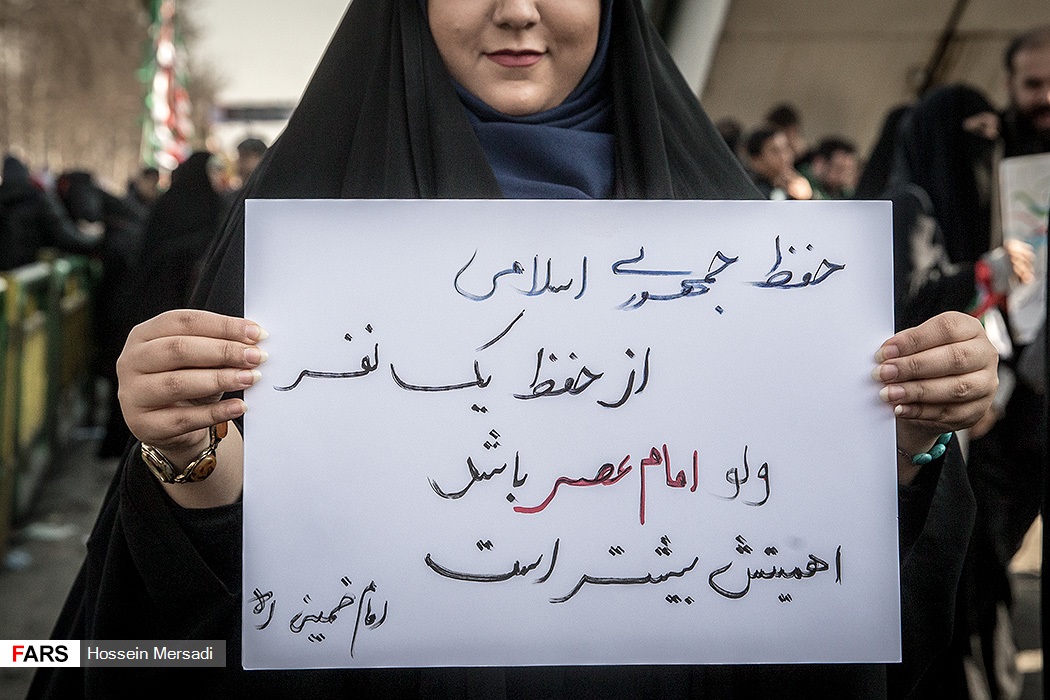 حفظ جمهوری اسلامی
از حفظ یک نفر
ولو امام عصر باشد
اهمیتش بیشتر است
امام خمینی ره
FARS Hossein Mersadi